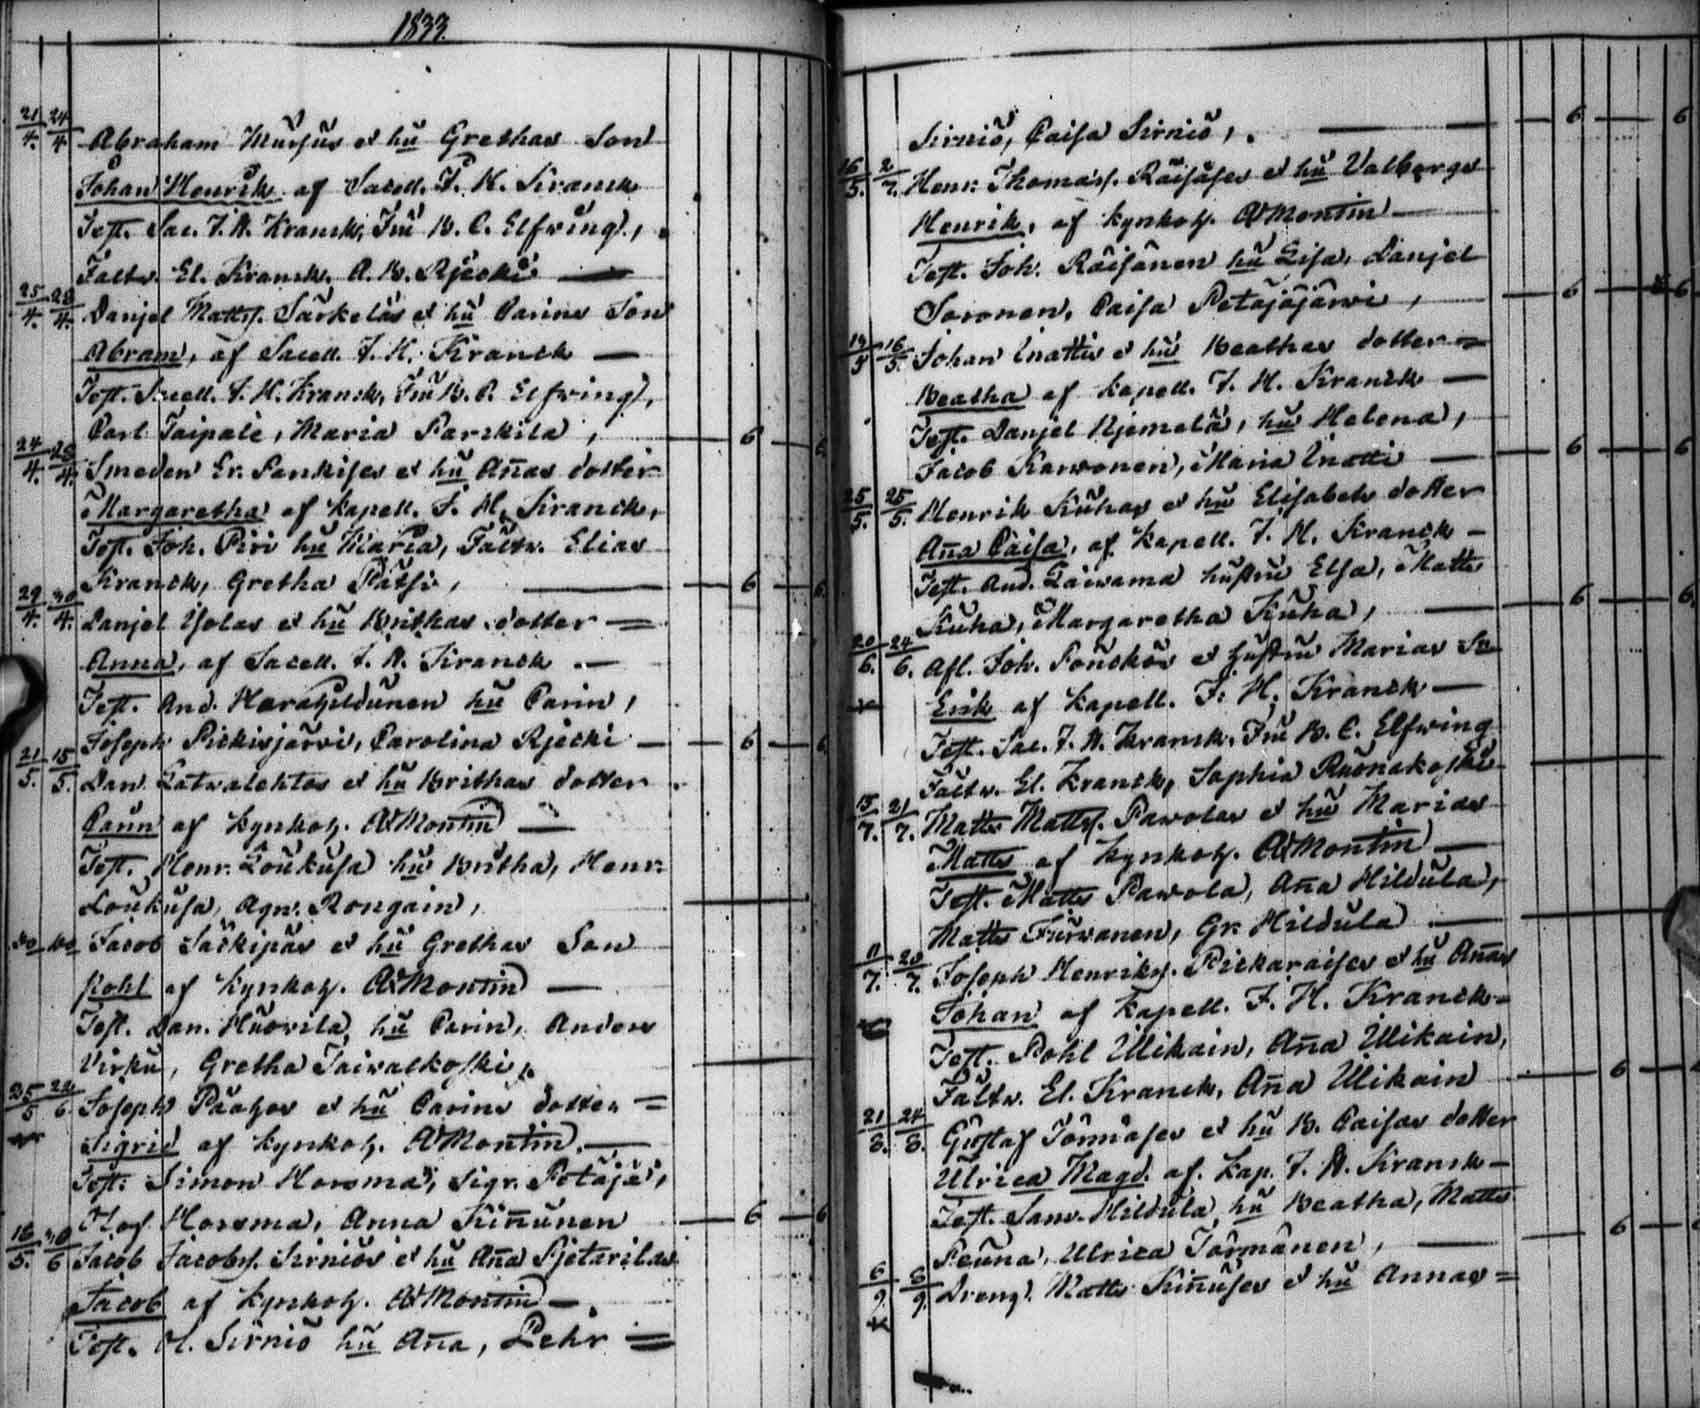 1833.
21/4. 24/4 Abraham Mursus et hu Grethas Son
Johan Henrik af Sacell. F. H. Kranck
Test. Sac. F. H. Kranck, Fru B. C. Elfwing,
Fältw. El. Kranck, A. B. Rjecki
25/4. 28/4. Danjel Matts. Särkeläs et hu Carins Son
Abram, af Sacell. F. H. Kranck —
Test. Sacell. F. H. Kranck, Fru B. C. Elfwing,
Carl Taipale, Maria Parckila, 6 6
24/4. 28/4. Smeden Er. Pankises et hu Añas dotter
Margaretha af Kapell. F. H. Kranck,
Test. Joh. Piri hu Maria, Fältw. Elias
Kranck, Gretha Pätsi, — 6 6
29/4. 30/4. Danjel Ylolas et hu Brithas dotter =
Anna, af Sacell. F. H. Kranck. —
Test. And. hu Carin,
Joseph Pickisjärvi, Carolina Rjecki — 6 6
21/5. 15/5. Dan. Latwalehtos et hu Brithas dotter
Carin af Kynkoh. AMontin —
Test. Henr. Loukusa hu Britha, Henr.
Loukusa, Agn. Rongain,
Jacob Säckipäs et hu Grethas Son
Pohl af Kynkoh. AMontin —
Test. Dan. Huovila hu Carin, Anders
Virku, Gretha Taivalkoski,
25/5 22/6. Joseph et hu Carins dotter =
Sigrid af Kynkoh. AMontin. —
Test. Simon Horsma, Sigr. Petäjä,
Olof Horsma, Anna Kiñunen 6 6
16/5. 30/6 Jacob Jacobs. Sirniös et hu Aña Pjetarilas
Jacob af Kynkoh. AMontin —
Test. H. Sirniö hu Aña, Pehr =
Sirniö, Caisa Sirniö, — 6 6
16/5. 2/7. Henr. Thomas. Räisäses et hu Valborgs
Henrik, af Kynkoh. AMontin —
Test. Joh. Räisänen hu Lisa, Danjel
Soronen, Caisa Petäjäjärwi, 6 6
14/5 16/5. Johan Inattis et hu Beathas dotter =
Beatha af Kapell. F. H. Kranck —
Test. Danjel Njemelä, hu Helena,
Jacob Karwonen, Maria Inatti — 6 6
25/5. 25/5. Henrik Kuhas et hu Elisabets dotter
Aña Caisa, af Kapell. F. H. Kranck —
Test. And. Laiwama hustru Elsa, Matts
Kuha, Margaretha Kuha, — 6 6
20/6. 24/6. Afl. Joh. Pouckas et hustru Marias Sn
Erik af Kapell. F. H. Kranck —
Test. Sac. F. H. Kranck, Fru B. C. Elfwing
Fältw. El. Kranck, Sophia Ruonakoski
15/7. 21/7. Matts Matts. Pawolas et hu Marias
Matts af Kynkoh. AMontin —
Test. Matts Pawola, Aña Hildula,
Matts Turwanen, Gr. Hildula —
11/7. 20/7. Joseph Henriks. Pickaraises et hu Añas
Johan af Kapell. F. H. Kranck =
Test. Pohl Ulikain, Aña Ulikain,
Fältw. El. Kranck, Aña Ulikain 6
21/8. 24/8. Gustaf Törmäses et hu B. Caisas dotter
Ulrica Magd. af Kap. F. H. Kranck —
Test. Sam. Hildula hu Beatha, Matts
Peuna, Ulrica Törmänen, — 6
6/9. 8/9. Dreng. Matts Kiñuses et hu Annas =